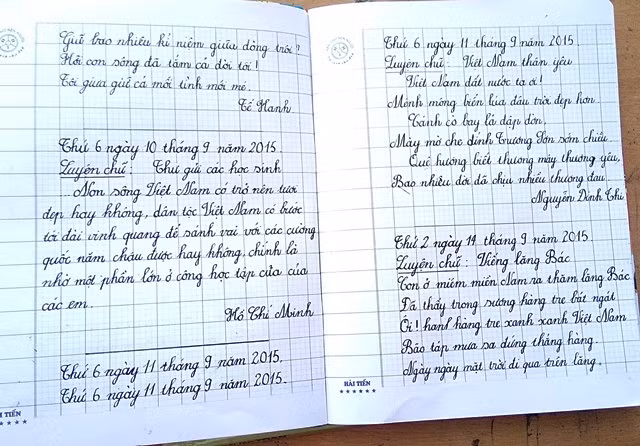 Giữ bao nhiêu kỉ niệm giữa dòng trôi?
Hỡi con sông đã tắm cả đời tôi!
Tôi giữ cả mối tình mới mẻ.
Tế Hanh
Thứ 6 ngày 10 tháng 9 năm 2015.
Luyện chữ: Thư gửi các học sinh
... Non sông Việt Nam có trở nên tươi
đẹp hay không, dân tộc Việt Nam có bước
tới đài vinh quang để sánh vai với các cường
quốc năm châu được hay không, chính là
nhờ một phần lớn ở công học tập của của
các em.
Hồ Chí Minh
Thứ 6 ngày 11 tháng 9 năm 2015.
Thứ 6 ngày 11 tháng 9 năm 2015.
TIẾN
Thứ 6 ngày 11 tháng 9 năm 2015.
Luyện chữ: Việt Nam thân yêu
Việt Nam đất nước ta ơi!
Mênh mông biển lúa đâu trời đẹp hơn
Cánh cò bay lả dập dờn,
Mây mờ che đỉnh Trường Sơn sớm chiều
Quê hương biết thương mây thương yêu,
Bao nhiêu đời đã chịu nhiều thương đau
Nguyễn Đình Thi
Thứ 2 ngày 14 tháng 9 năm 2015
Luyện chữ: Viếng lăng Bác
Con ở miềm miền Nam ra thăm lăng Bác
Đã thấy trong sương hàng tre bát ngát
Ôi! hanf hàng tre xanh xanh Việt Nam
Bão táp mưa sa đứng thẳng hàng.
Ngày ngày mặt trời đi qua trên lăng.
HẢI TIẾN